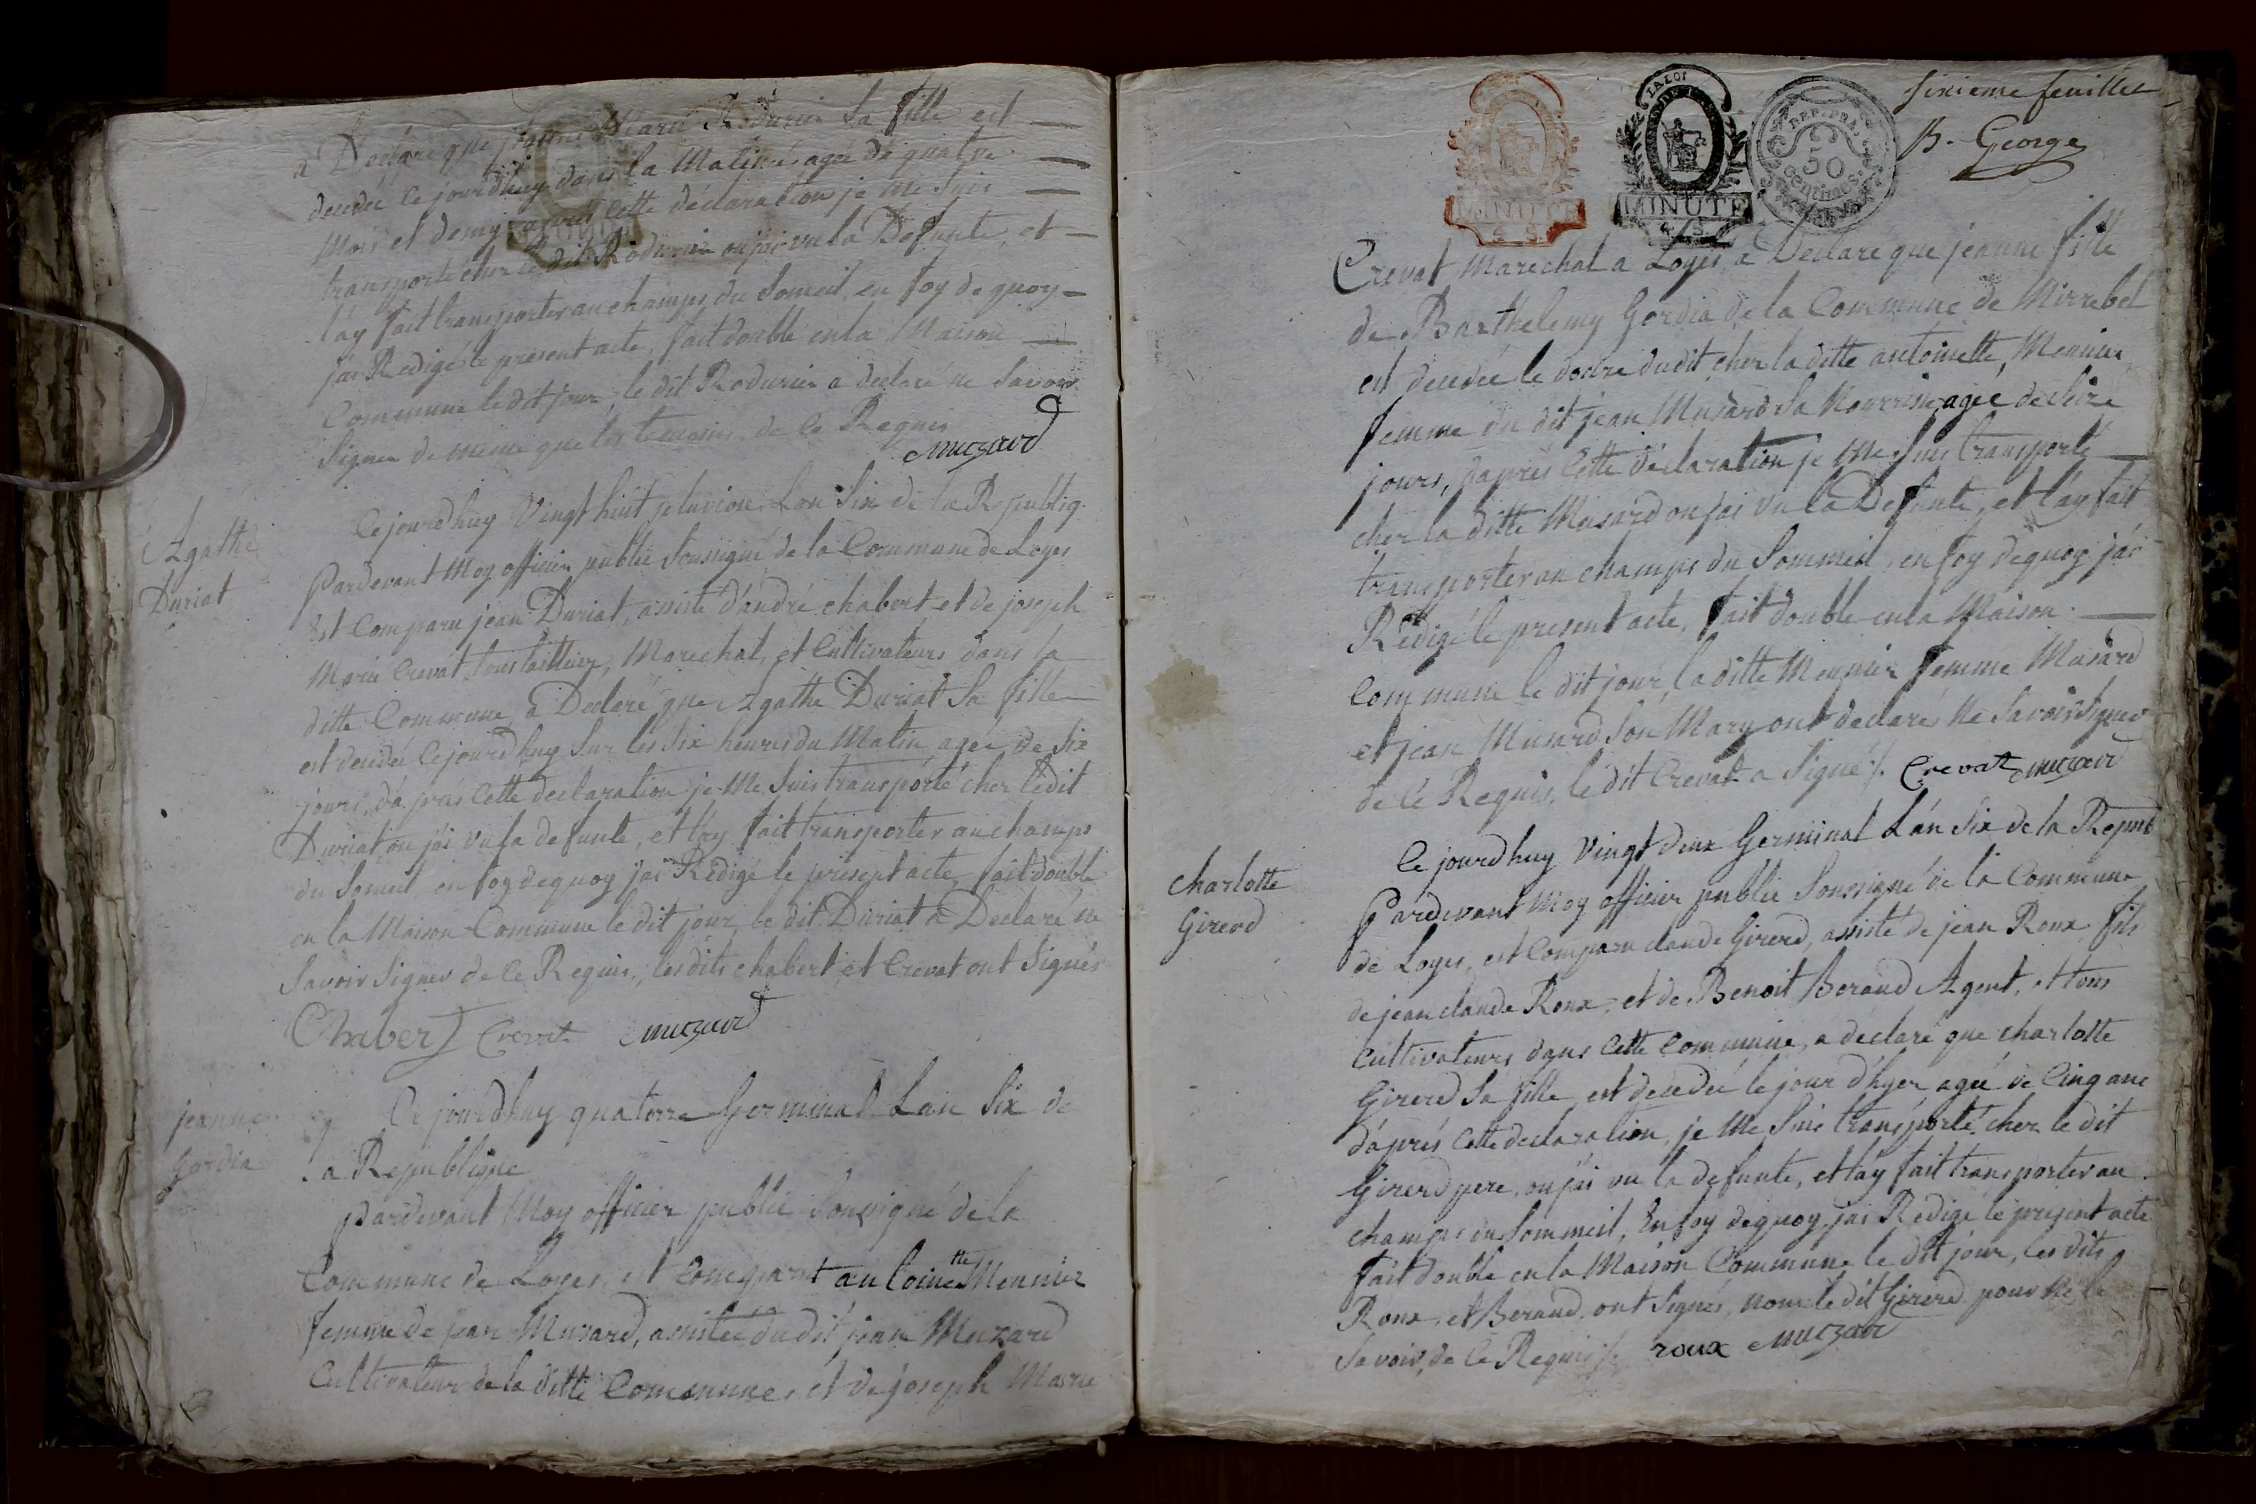 a Déclaré que jeanne Marie Rodurier Sa fille est
decedée Ce jourd'huy dans la Matinée agée de quatre
Mois et demy, d'après Cette déclaration je me Suis
transporté chez le dit Rodurier ou j'ai vu la Defunte, et
l'ay fait transporter au champs du Someil, en foy de quoy
j'ai Redigé le present acte, fait double en la Maison
Commune le dit jour, le dit Rodurier a declaré ne Savoir
Signer de même que les temoins de Ce Requis
Muzard
Agathe
Duriat
Ce jourd'huy Vingt huit pluviose L'an Six de la Republiq.
Pardevant Moy officier public Soussigné de la Commune de Loyes
Est Comparu jean Duriat, assisté d'andré chabert et de joseph
Marie Crevat tous taillieur, Marechal, et Cultivateurs dans la
ditte Commune, a Déclaré que Agathe Duriat Sa fille
est decedée Ce jourd'huy Sur les Six heures du Matin agée de Six
jours, d'après Cette declaration je Me Suis transporté chez le dit
Duriat ou j'ai vu la defunte, et l'ay fait transporter au champs
du Someil en foy de quoy j'ai Redigé le present acte, fait double
en la Maison Commune le dit jour, le dit Duriat a Declaré ne
Savoir Signer de Ce Requis, les dits chabert, et Crevat ont Signés
Chabert Crevat Muzard
jeanne
Gordia
Ce jourd'huy quatorze Germinal L'an Six de
la Republique
pardevant Moy officier public Soussigné de la
Commune de Loyes, est Comparut antoinette Mennier
femme de jean Musard, assistée du dit jean Muzard
Cultivateur de la ditte Commune, et de joseph Marie
Sixieme feuillet
B. George
LA LOI
MINUTE
MINUTE
REP. FRA.
50
centimes
Crevat Marechal a Loyes, a Declaré que jeanne fille
de Barthelemy Gordia de la Commune de Mirrebel
est decedée le doze dudit chez la ditte antoinette Mennier
femme du dit jean Musard Sa Nourrise agée de
jours, d'après Cette déclaration je Me Suis transporté
chez la ditte Musard ou j'ai Vu la Defunte, et l'ay fait
transporter au champs du Sommeil, en foy de quoy j'ai
Redigé le present acte, fait double en la Maison
Commune le dit jour, la ditte Mennier femme Musard
et jean Musard Son Mary ont déclarés Ne Savoir Signer
de Ce Requis, le dit Crevat a Signé /. Crevat Muzard
charlotte
Girerd
Ce jourd'huy Vingt deux Germinal L'an Six de la Republ
Pardevant Moy officier public Soussigné de la Commune
de Loyes, est Comparu claude Girerd, assisté de jean Roux fils
de jean claude Roux, et de Benoit Beraud Agent, et tous
Cultivateurs dans Cette Commune, a declaré que charlotte
Girerd Sa fille est decedée le jour d'hyer agée de Cinq ans
d'après Cette declaration, je Me Suis transporté chez le dit
Girerd pere, ou j'ai vu la defunte, et l'ay fait transporter au
champs du Sommeil, En foy de quoy, j'ai Redigé le present acte
fait double en la Maison Commune le dit jour, les dits
Roux, et Beraud ont Signés, non le dit Girerd pour Ne le
Savoir, de Ce Requis /. roux Muzard